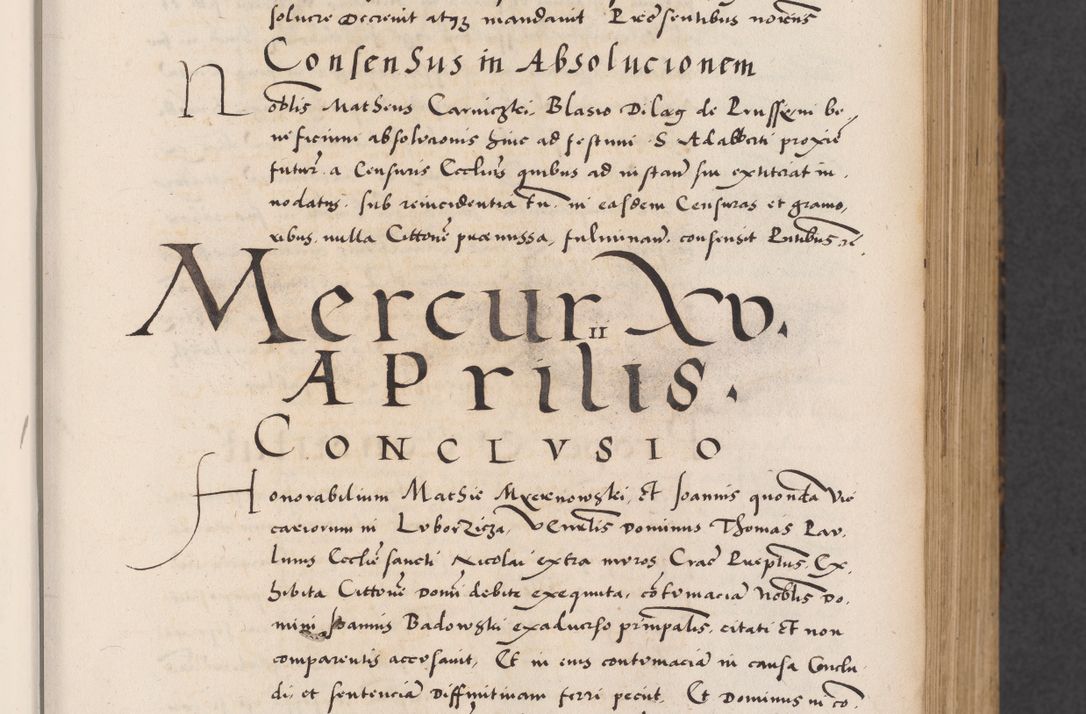 soluere Decrevit atqz mandavit Presentibus
Consensus in Absolucionem
Nobilis Matheus Carniczki, Blasio Dilag de Prusseni be,
neficium absolucionis hinc ad festum S Adalberti proxie
futur a Censuris Ecclies quibus ad instan sui extiterat in,
nodatus, sub reincidentia tn, in easdem Censuras et gravio,
ribus, nulla Cittone praemissa, fulminan, consensit Pntibus
Mercur XV.
APrilis.
CONCLVSIO
Honorabilium Mathie et Joannis quonda Vic
cariorum in Luborzicza, Venrlis Dominus Thomas Pau,
linus Ecclie sancti Nicolai extra muros Crac Preptus, Ex,
hibita Cittone Domi debite exequuta, contumacia Nobilis Do,
mini Joannis Badowski exadverso principalis, citati et non
comparentis accusavit, Et in eius contumacia in causa Conclu
di, et sentencia Diffinitivam ferri peciit, Et Dominus in co,